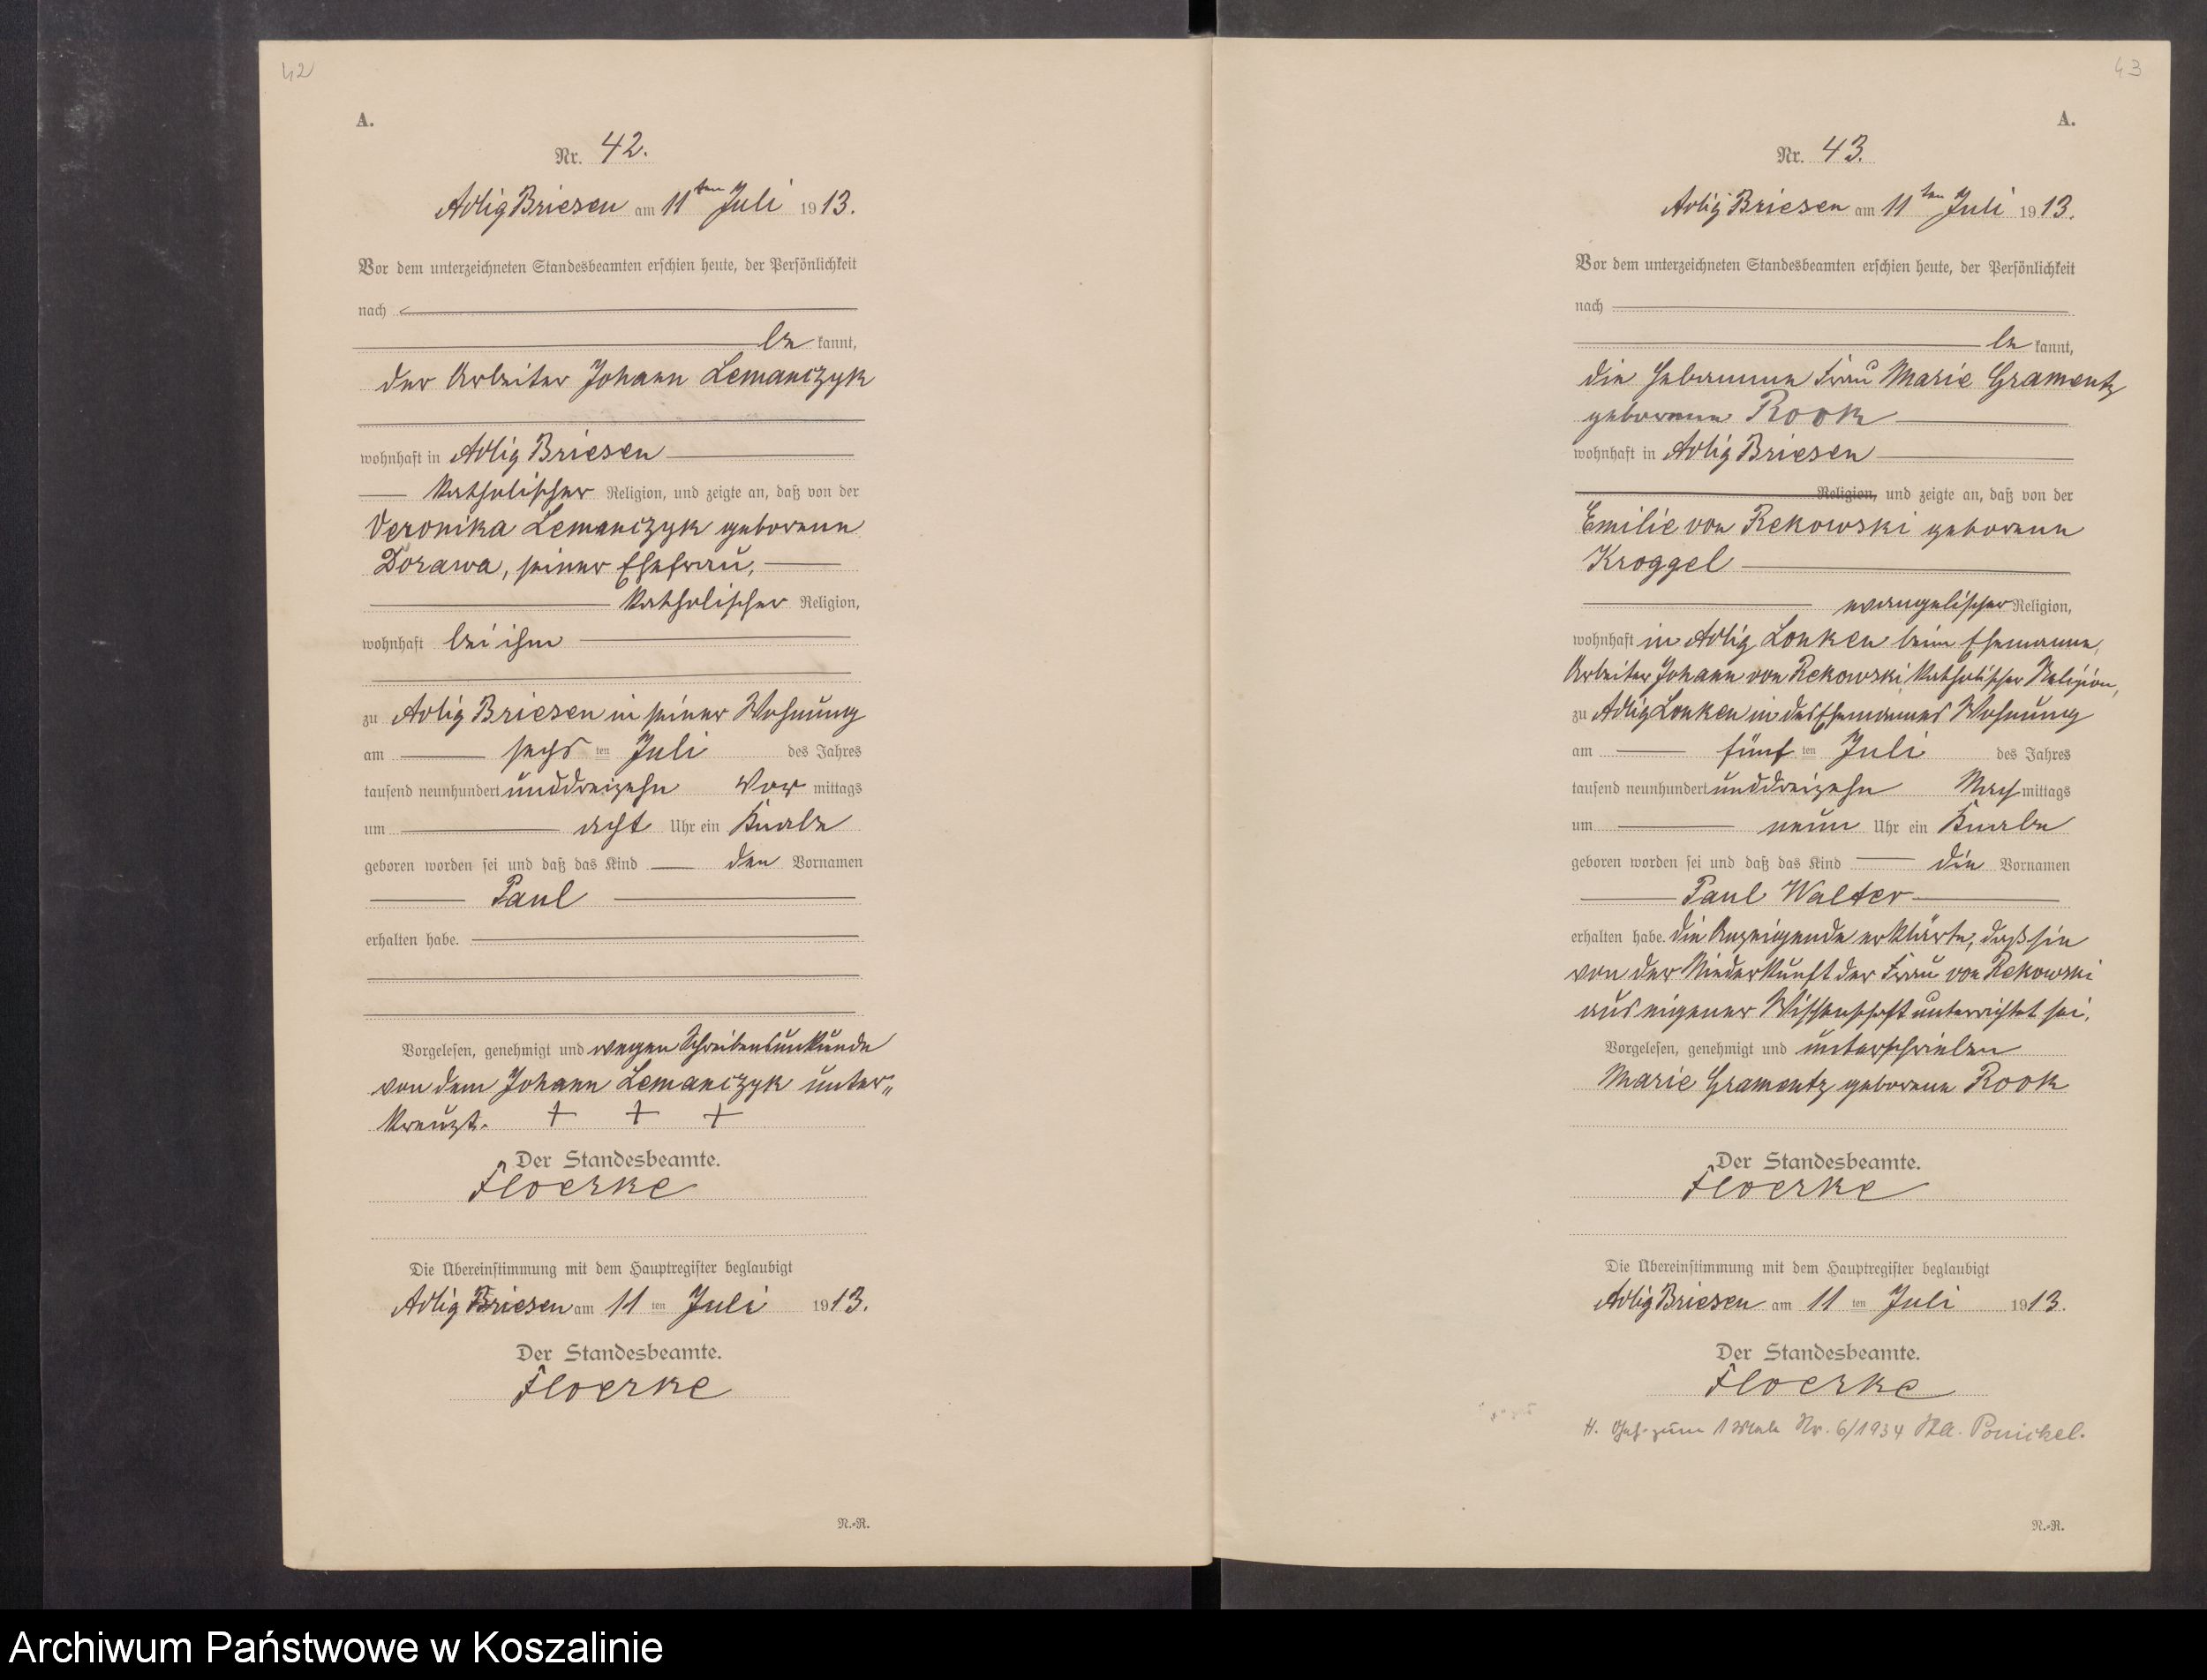 42
A.
Nr. 42.
Adlig Briesen am 11ten Juli 1913.
Vor dem unterzeichneten Standesbeamten erschien heute, der Persönlichkeit
nach
be kannt,
der Arbeiter Johann Lemanczyk
wohnhaft in Adlig Briesen
katholischer Religion, und zeigte an, daß von der
Veronika Lemanczyk geborene
Dorawa, seiner Ehefrau,
katholischer Religion,
wohnhaft bei ihm
zu Adlig Briesen in seiner Wohnung
am sechs ten Juli des Jahres
tausend neunhundert unddreizehn Vor mittags
um acht Uhr ein Knabe
geboren worden sei und daß das Kind den Vornamen
Paul
erhalten habe.
Vorgelesen, genehmigt und wegen Schreibensunkunde
von dem Johann Lemanczyk unter„
kreuzt. + + +
Der Standesbeamte.
Floerke
Die Übereinstimmung mit dem Hauptregister beglaubigt
Adlig Briesen am 11 ten Juli 1913.
Der Standesbeamte.
Floerke
N.-R.
43
A.
Nr. 43.
Adlig Briesen am 11ten Juli 1913.
Vor dem unterzeichneten Standesbeamten erschien heute, der Persönlichkeit
nach
be kannt,
die Hebamme Frau Marie Gramentz
geborene Rook
wohnhaft in Adlig Briesen
Religion, und zeigte an, daß von der
Emilie von Rekowski geborene
Kroggel
evangelischer Religion,
wohnhaft in Adlig Lonken beim Ehemanne,
Arbeiter Johann von Rekowski, katholischer Religion,
zu Adlig Lonken in des Ehemannes Wohnung
am fünf ten Juli des Jahres
tausend neunhundert unddreizehn Nach mittags
um neun Uhr ein Knabe
geboren worden sei und daß das Kind die Vornamen
Paul Walter
erhalten habe. Die Anzeigende erklärte, daß sie
von der Niederkunft der Frau von Rekowski
aus eigener Wissenschaft unterrichtet sei.
Vorgelesen, genehmigt und unterschrieben
Marie Gramentz geborene Rook
Der Standesbeamte.
Floerke
Die Übereinstimmung mit dem Hauptregister beglaubigt
Adlig Briesen am 11 ten Juli 1913.
Der Standesbeamte.
Floerke
H. Geh. zum 1 Male Nr. 6/1934 Ponickel.
N.-R.
Archiwum Państwowe w Koszalinie